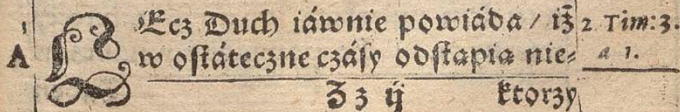 1
A
LEcz Duch iáwnie powiáda / iż 2 Tim: 3.
w ostáteczne czásy odstąpią nie⸗ a 1.
Zz ij ktorzy